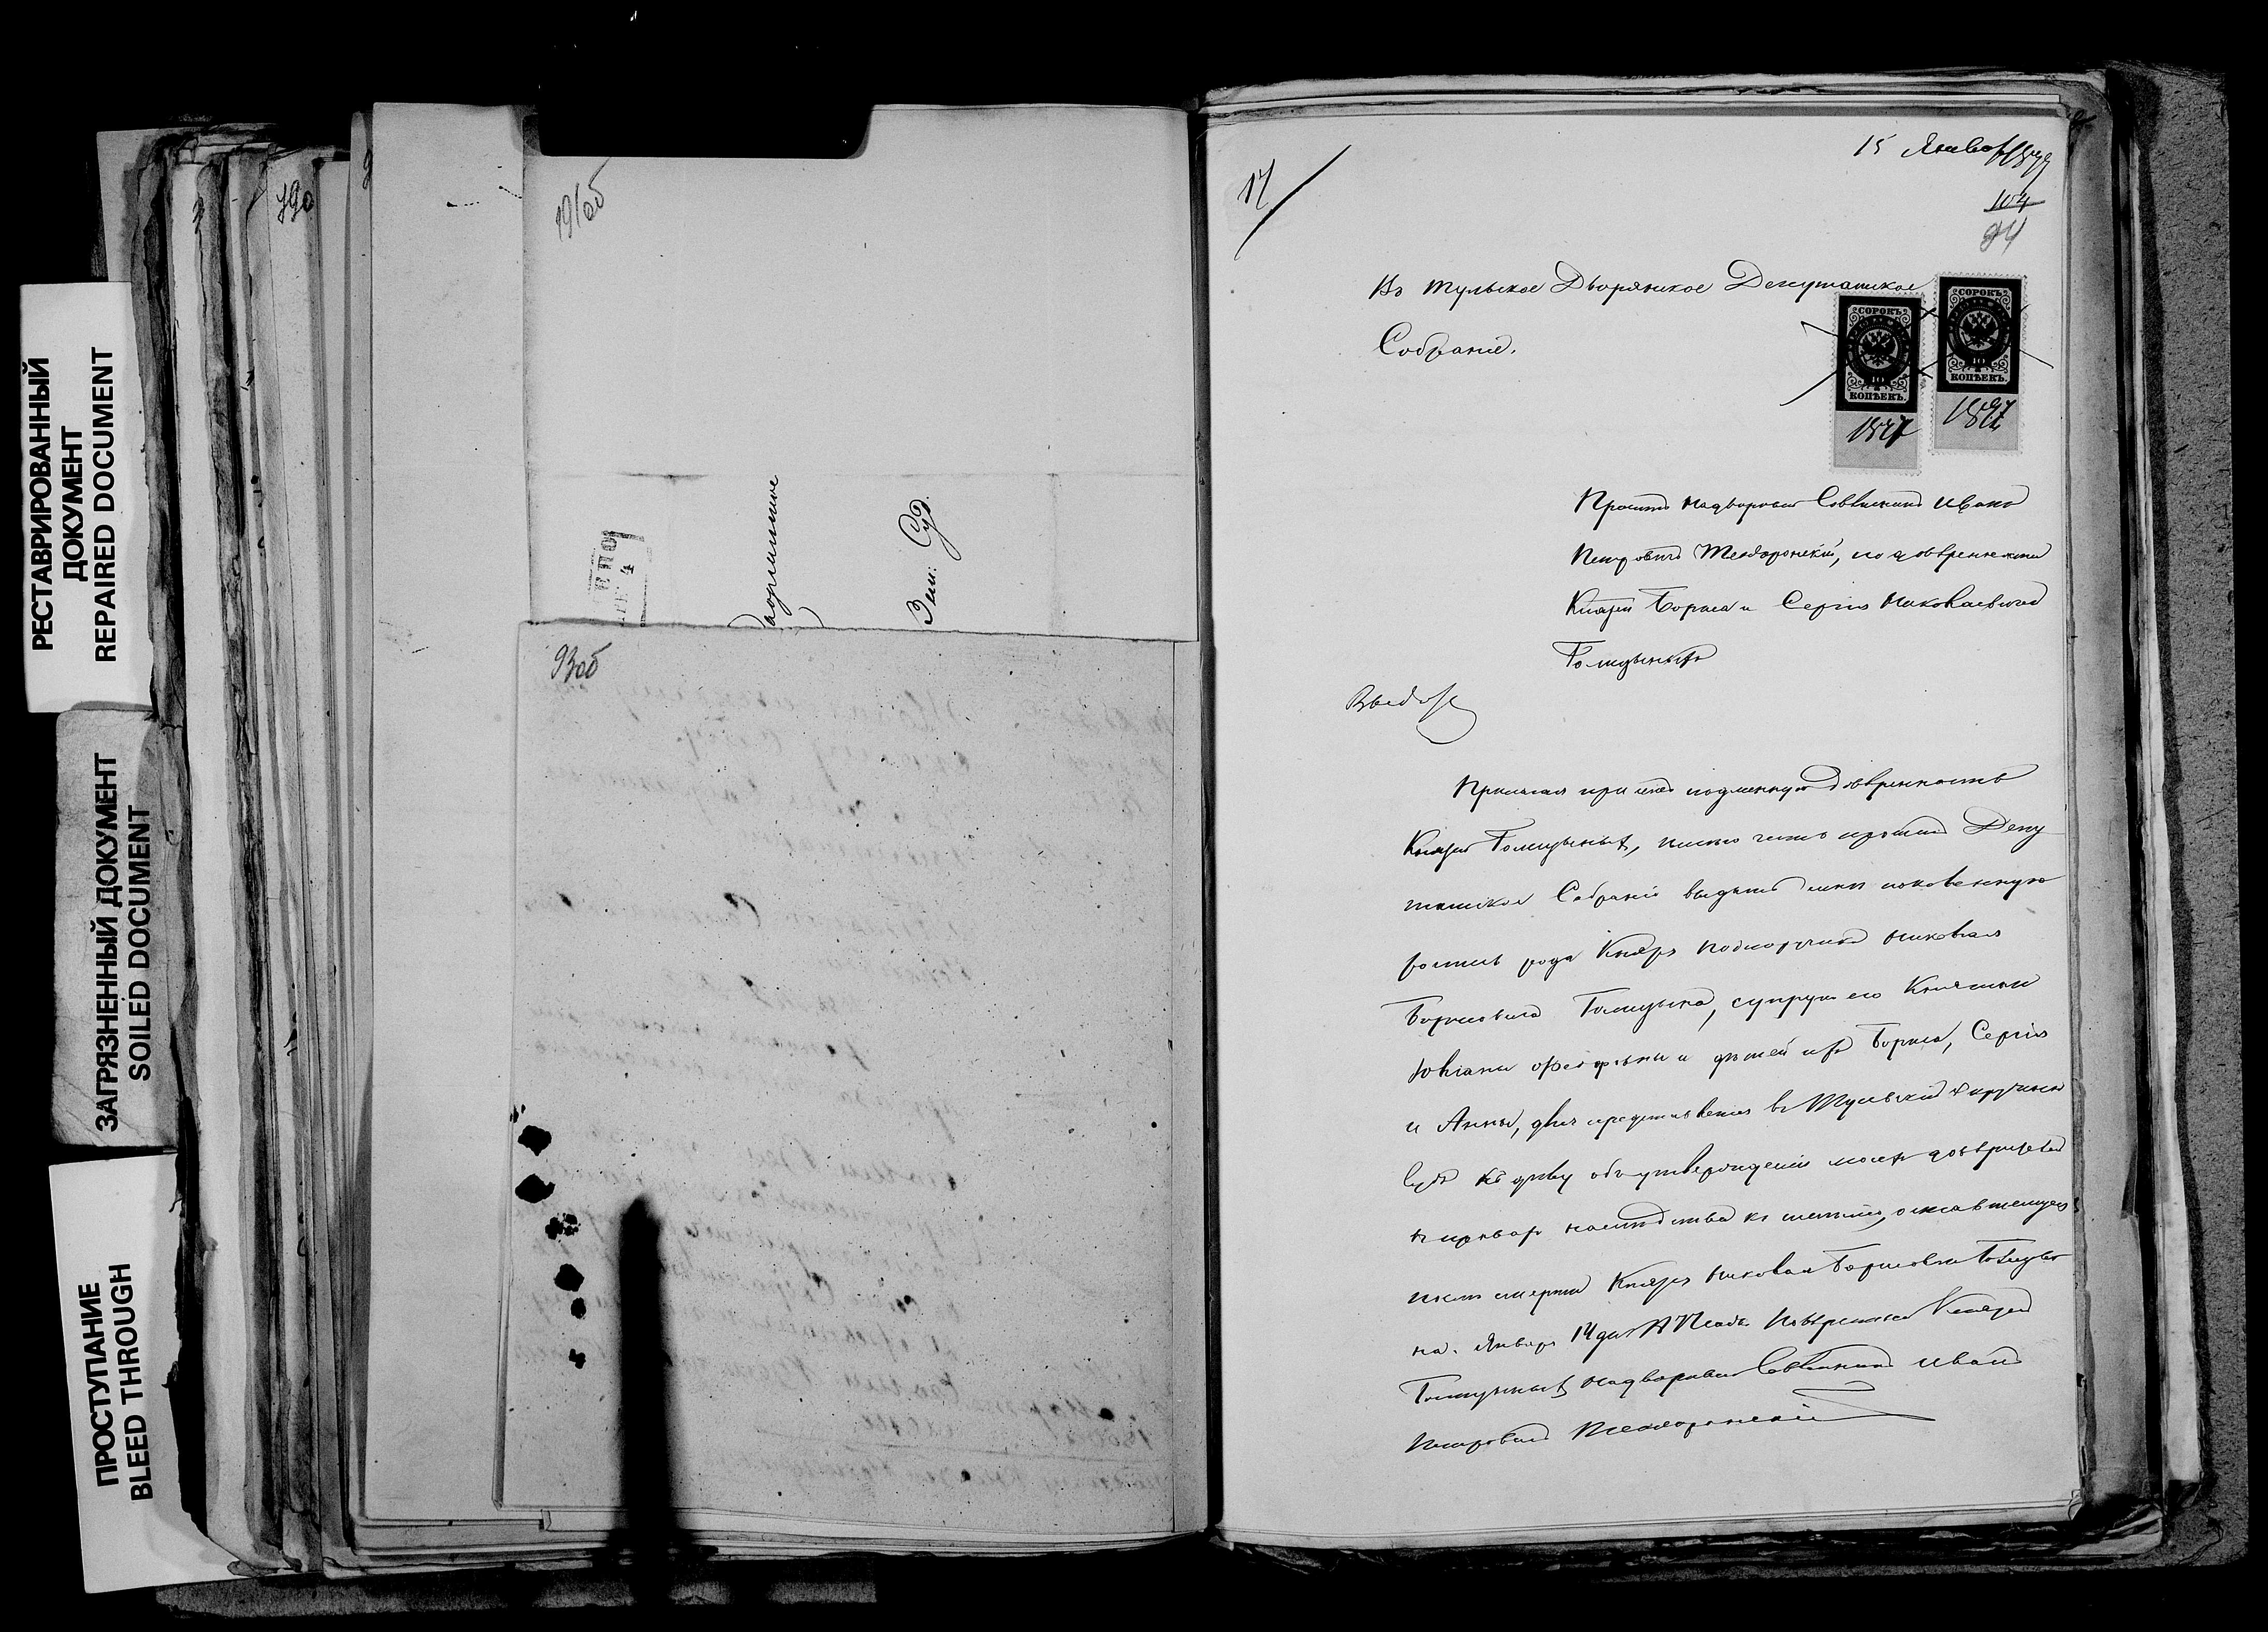 РЕСТАВРИРОВАННЫЙ
ДОКУМЕНТ
REPAIRED DOCUMENT
ЗАГРЯЗНЕННЫЙ ДОКУМЕНТ
SOILED DOCUMENT
ПРОСТУПАНИЕ
BLEED THROUGH
190
191об
Зем: Суд.
93об
17
15 Января
104
94
Въ Тульское Дворянское Депутатское
Собраніе.
СОРОКЪ
40
КОПѢЕКЪ.
СОРОКЪ
40
КОПѢЕКЪ.
1877
1877
Проситъ надворный Совѣтникъ Иванъ
Петровичъ по довѣренности
Князей Бориса и Сергія Николаевичей
Голицыныхъ
Прилагая при семъ подлинную довѣренность
Князей Голицыныхъ, имѣю честь просить Депу
татское Собраніе выдать мнѣ поколенную
роспись рода Князя подпоручика Николая
Борисовича Голицына, супруги его Княгини
и дѣтей ихъ Бориса, Сергія
и Анны, для представленія въ Тульскій Окружный
Судъ къ дѣлу объ утвержденіи моихъ довѣрителей
въ правахъ наслѣдства къ имѣнію, оставшемуся
послѣ смерти Князя Николая Борисовича Голицы
на. Января 14 дня 1877 года. Повѣренный Князей
Голицыныхъ надворный Совѣтникъ Иванъ
Петровичъ